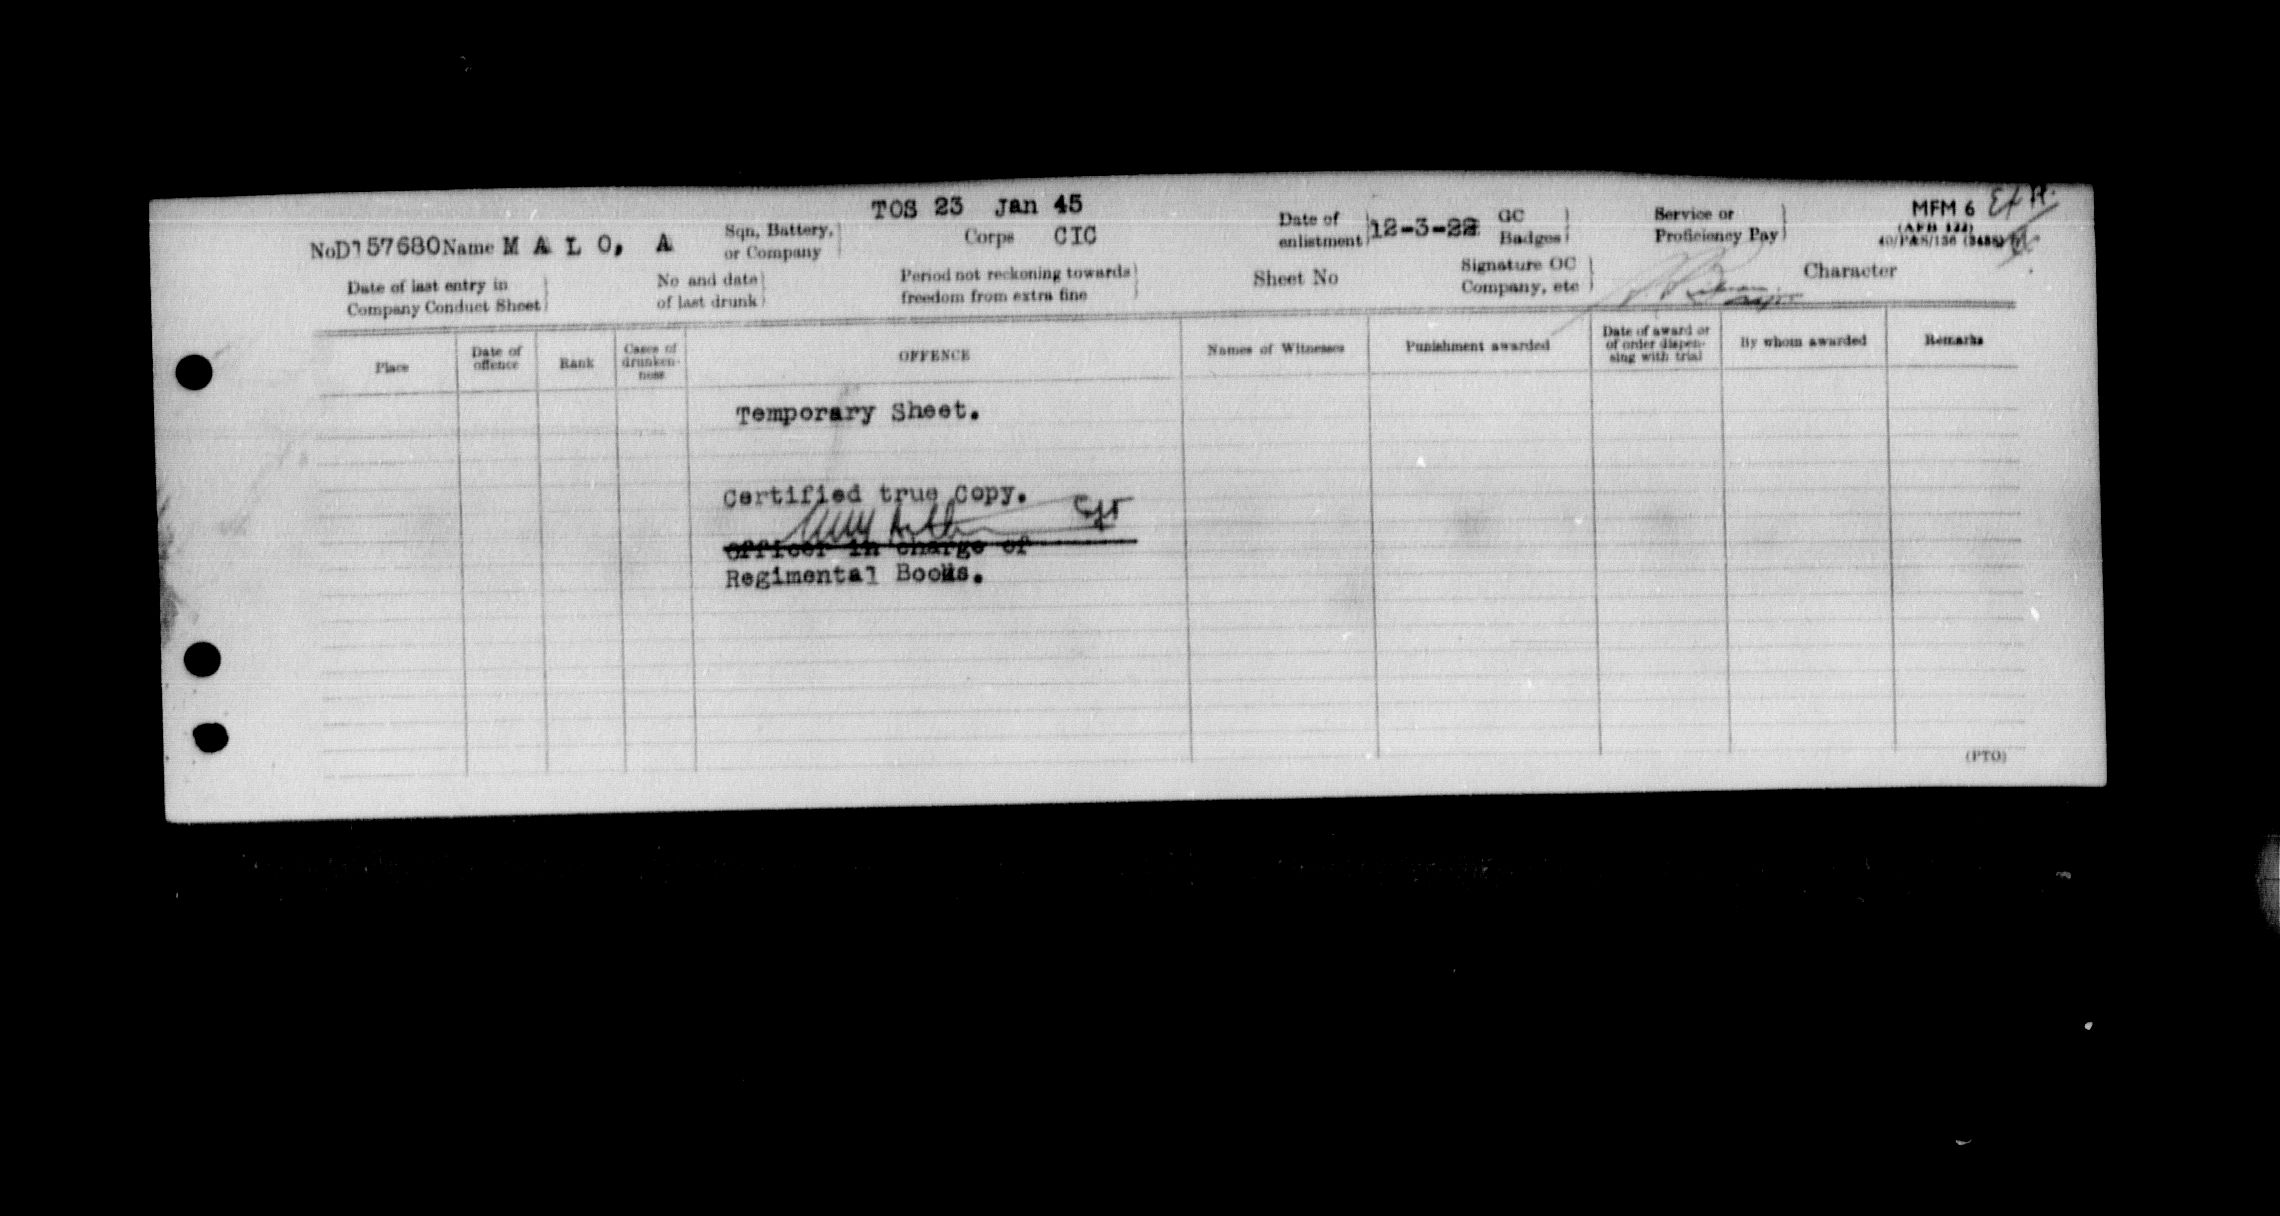 TOS 23 Jan 45
MFM 6
(AFB 122)
NoD157680 Name M A L O, A
Sqn, Battery, or Company
Corps CIC
Date of enlistment 12-3-22
GC Badges
Service or Proficiency Pay
Date of last entry in Company Conduct Sheet
No and date of last drunk
Period not reckoning towards freedom from extra fine
Sheet No
Signature OC Company, etc
Character
Place
Date of offence
Rank
Cases of drunken-ness
OFFENCE
Names of Witnesses
Punishment awarded
Date of award or of order dispen-sing with trial
By whom awarded
Remarks
Temporary Sheet.
Certified true Copy.
Cpt
Officer in charge of
Regimental Books.
(PTO)